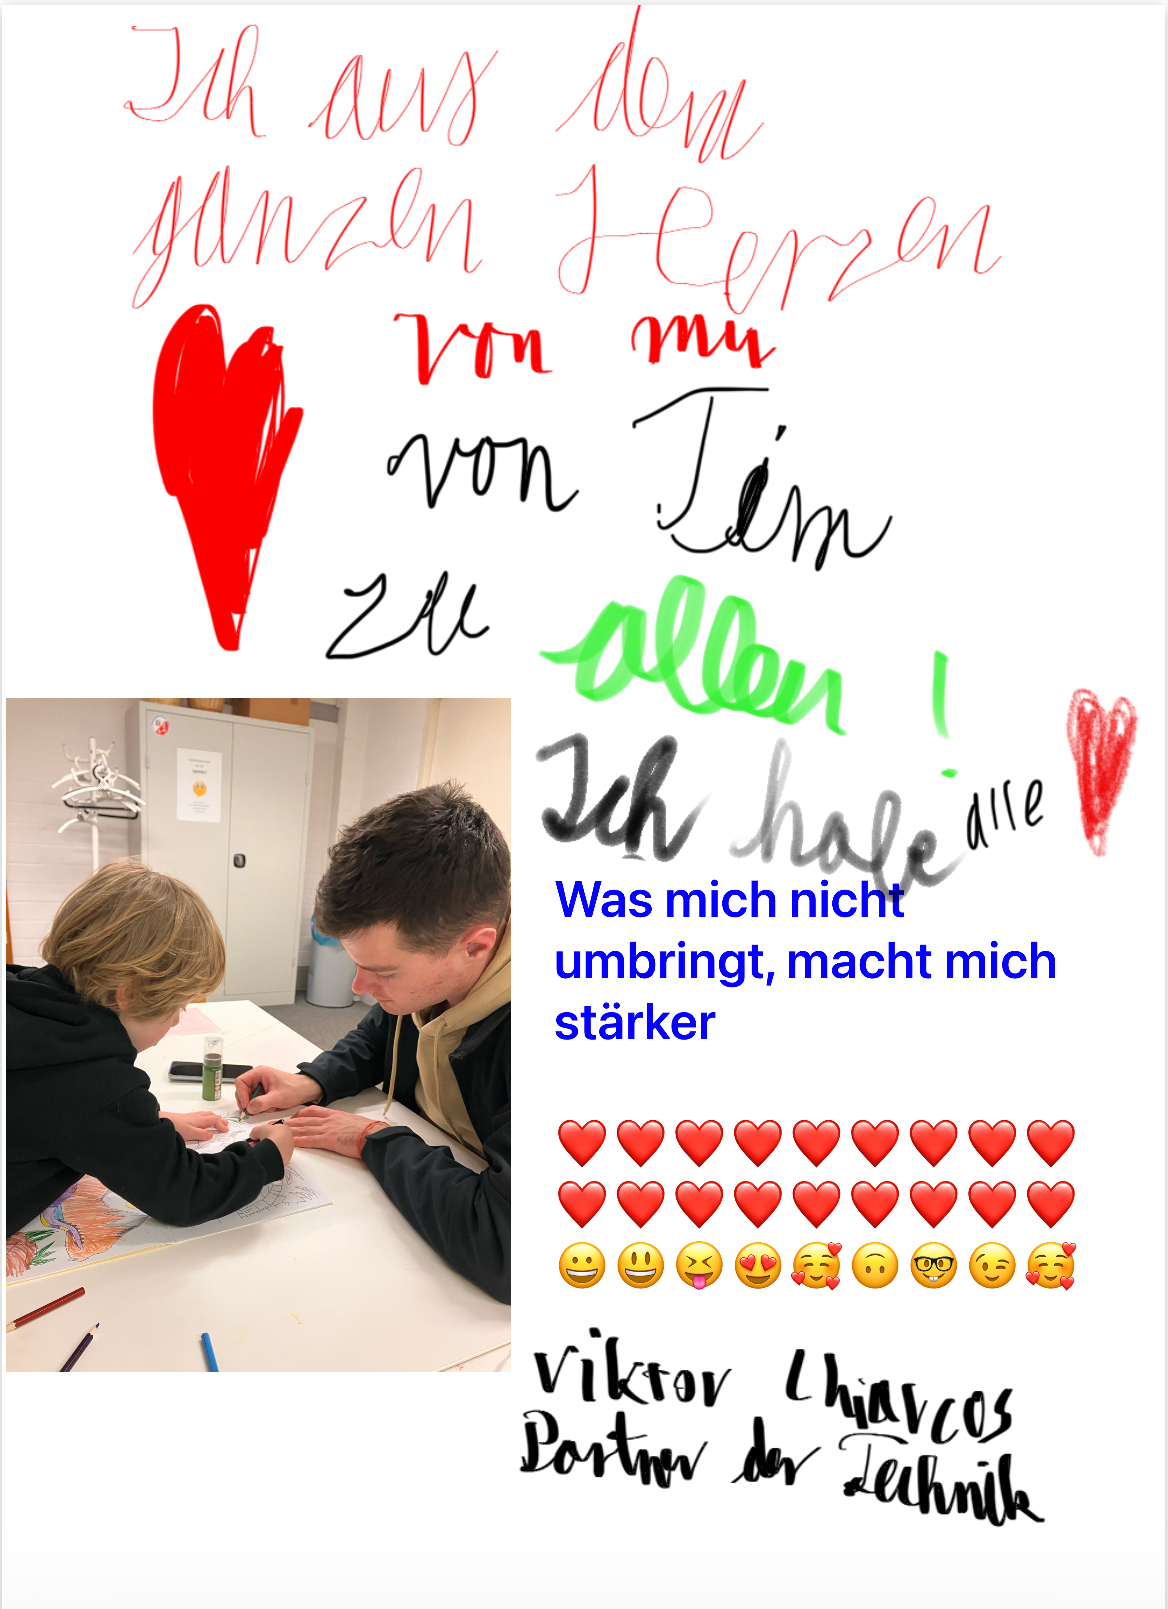 Ich aus dem
ganzen Herzen
von mir
von Tim
zu allen !
Ich habe alle
Was mich nicht
umbringt, macht mich
stärker
❤️❤️❤️❤️❤️❤️❤️❤️❤️
❤️❤️❤️❤️❤️❤️❤️❤️❤️
😀😃😝😍🥰🙃🤓😉🥰
Viktor Chiarcos
Partner der Technik